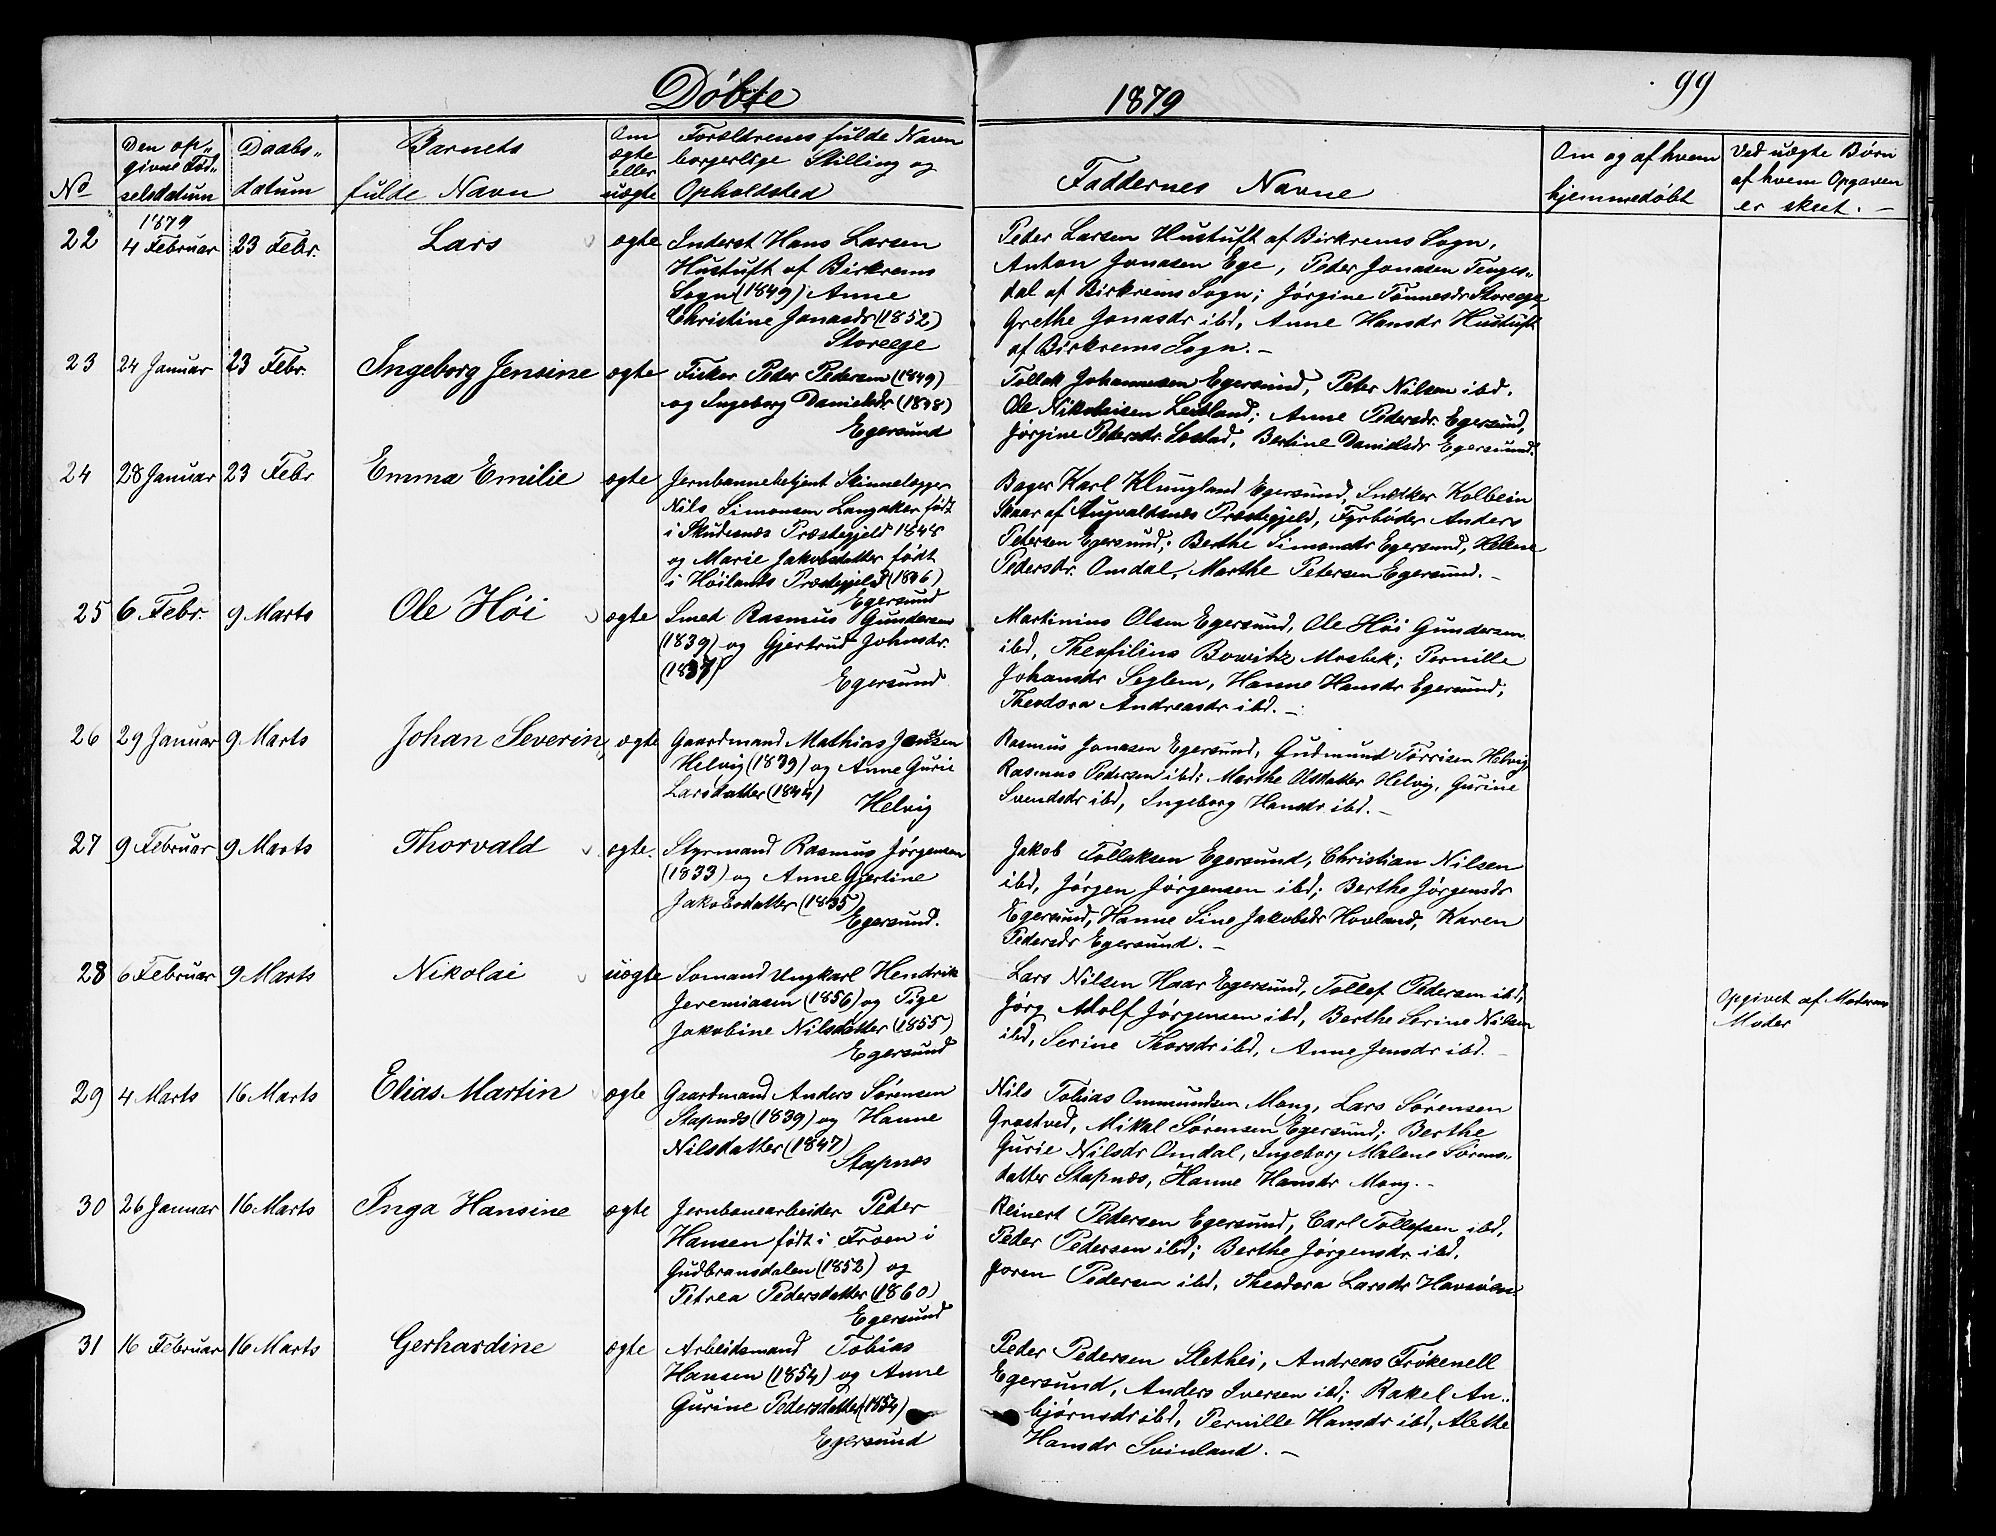 Døbte 1879 99
No
Den op-
givne Fød-
selsdatum
Daabs-
datum
Barnets
fulde Navn
Om
ægte
eller
uægte
Forældrenes fulde Navn
borgerlige Stilling og
Opholdsted
Faddernes Navne
Om og af hvem
hjemmedøbt
Ved uægte Børn
af hvem Opgaven
er skeet. -
1879
22 4 Februar 23 Febr. Lars ægte
Inderst Hans Larsen
Hustuft af Birkrems
Sogn (1849) Anne
Christine Jonasdr (1852)
Storeege
Peder Larsen Hustuft af Birkrems Sogn,
Anton Jonasen Ege, Peder Jonasen Tenges-
dal af Birkrems Sogn; Jørgine Tønnesdr Storeege,
Grethe Jonasdr ibd, Anne Hansdr Hustuft
af Birkrems Sogn. -
23 24 Januar 23 Febr. Ingeborg Jensine ægte
Fisker Peder Pedersen (1849)
og Ingeborg Danielsdr (1838)
Egersund
Tollak Johannesen Egersund, Peter Nilsen ibd.
Ole Nikolaisen Leidland; Anne Pedersdr. Egersund,
Jørgine Petersdr. Sæstad, Bertine Danielsdr Egersund.
24 28 Januar 23 Febr Emma Emilie ægte
Jernbannebetjent Skinnelægger
Nils Simonsen Langaker født
i Skudesnæs Præstegjeld 1848
og Marie Jakobsdatter født
i Høilands Præstegjeld (1846)
Egersund
Bager Karl Klungland Egersund, Snedker Kolbein
Skaar af Augvaldsnes Præstegjeld, Fyrbøder Anders
Petersen Egersund; Berthe Simonsdr Egersund, Helene
Pedersdr. Omdal, Marthe Petersen Egersund. -
25 6 Febr. 9 Marts Ole Høi ægte
Smed Rasmus Gundersen
(1839) og Gjertrud Johnsdr.
(1837)
Egersund
Martinius Olsen Egersund, Ole Høi Gundersen
ibd, Theofilius Bowitz Mosbek; Pernille
Johansdr Seglem, Hanne Hansdr Egersund;
Theodora Andreasdr ibd. -
26 29 Januar 9 Marts Johan Severin, ægte
Gaardmand Mathias Jensen
Helvig (1839) og Anne Gurie
Larsdatter (1844)
Helvig
Rasmus Jonasen Egersund, Gudmund Torrisen Helvig,
Rasmus Pedersen ibd; Marthe Olsdatter Helvig, Gurine
Svendsdr ibd, Ingeborg Hansdr ibd. -
27 9 Februar 9 Marts Thorvald ægte.
Styrmand Rasmus Jørgensen
(1833) og Anne Gjertine
Jakobsdatter (1835)
Egersund.
Jakob Tollaksen Egersund, Christian Nilsen
ibd, Jørgen Jørgensen ibd; Berthe Jørgensdr
Egersund, Hanne Sine Jakobsdr Hovland, Karen
Pedersdr Egersund. -
28 6 Februar 9 Marts Nikolai uægte
Sømand Ungkarl Hendrik
Jeremiasen (1856) og Pige
Jakobine Nilsdatter (1855)
Egersund
Lars Nilsen Haar Egersund, Tollef Pedersen ibd,
Jørg Adolf Jørgensen ibd, Berthe Serine Nilsen
ibd, Serine Thorsdr ibd, Anne Jensdr ibd. -
Opgivet af Moderens
Moder
29 4 Marts 16 Marts Elias Martin ægte
Gaardmand Anders Sørensen
Stapnæs (1839) og Hanne
Nilsdatter (1847)
Stapnæs
Nils Tobias Ommundsen Mong, Lars Sørensen
Grøstved, Mikal Sørensen Egersund; Berthe
Gurie Nilsdr Omdal, Ingeborg Malene Sørens-
datter Stapnæs, Hanne Hansdr Mong. -
30 26 Januar 16 Marts Inga Hansine ægte
Jernbanearbeider Peder
Hansen født i Froen i
Gudbransdalen (1852) og
Petrea Pedersdatter (1860)
Egersund
Reinert Pedersen Egersund, Carl Tollefsen ibd,
Peder Pedersen ibd; Berthe Jørgensdr ibd,
Joren Pedersen ibd, Theodora Larsdr
31 16 Februar 16 Marts Gerhardine ægte
Arbeidsmand Tobias
Hansen (1854) og Anne
Gurine Pedersdatter (1854)
Egersund
Peder Pedersen Slethei, Andreas Frøkenell
Egersund, Anders Iversen ibd; Rakel An-
bjørnsdr ibd, Pernille Hansdr ibd, Alethe
Hansdr Svinland. -